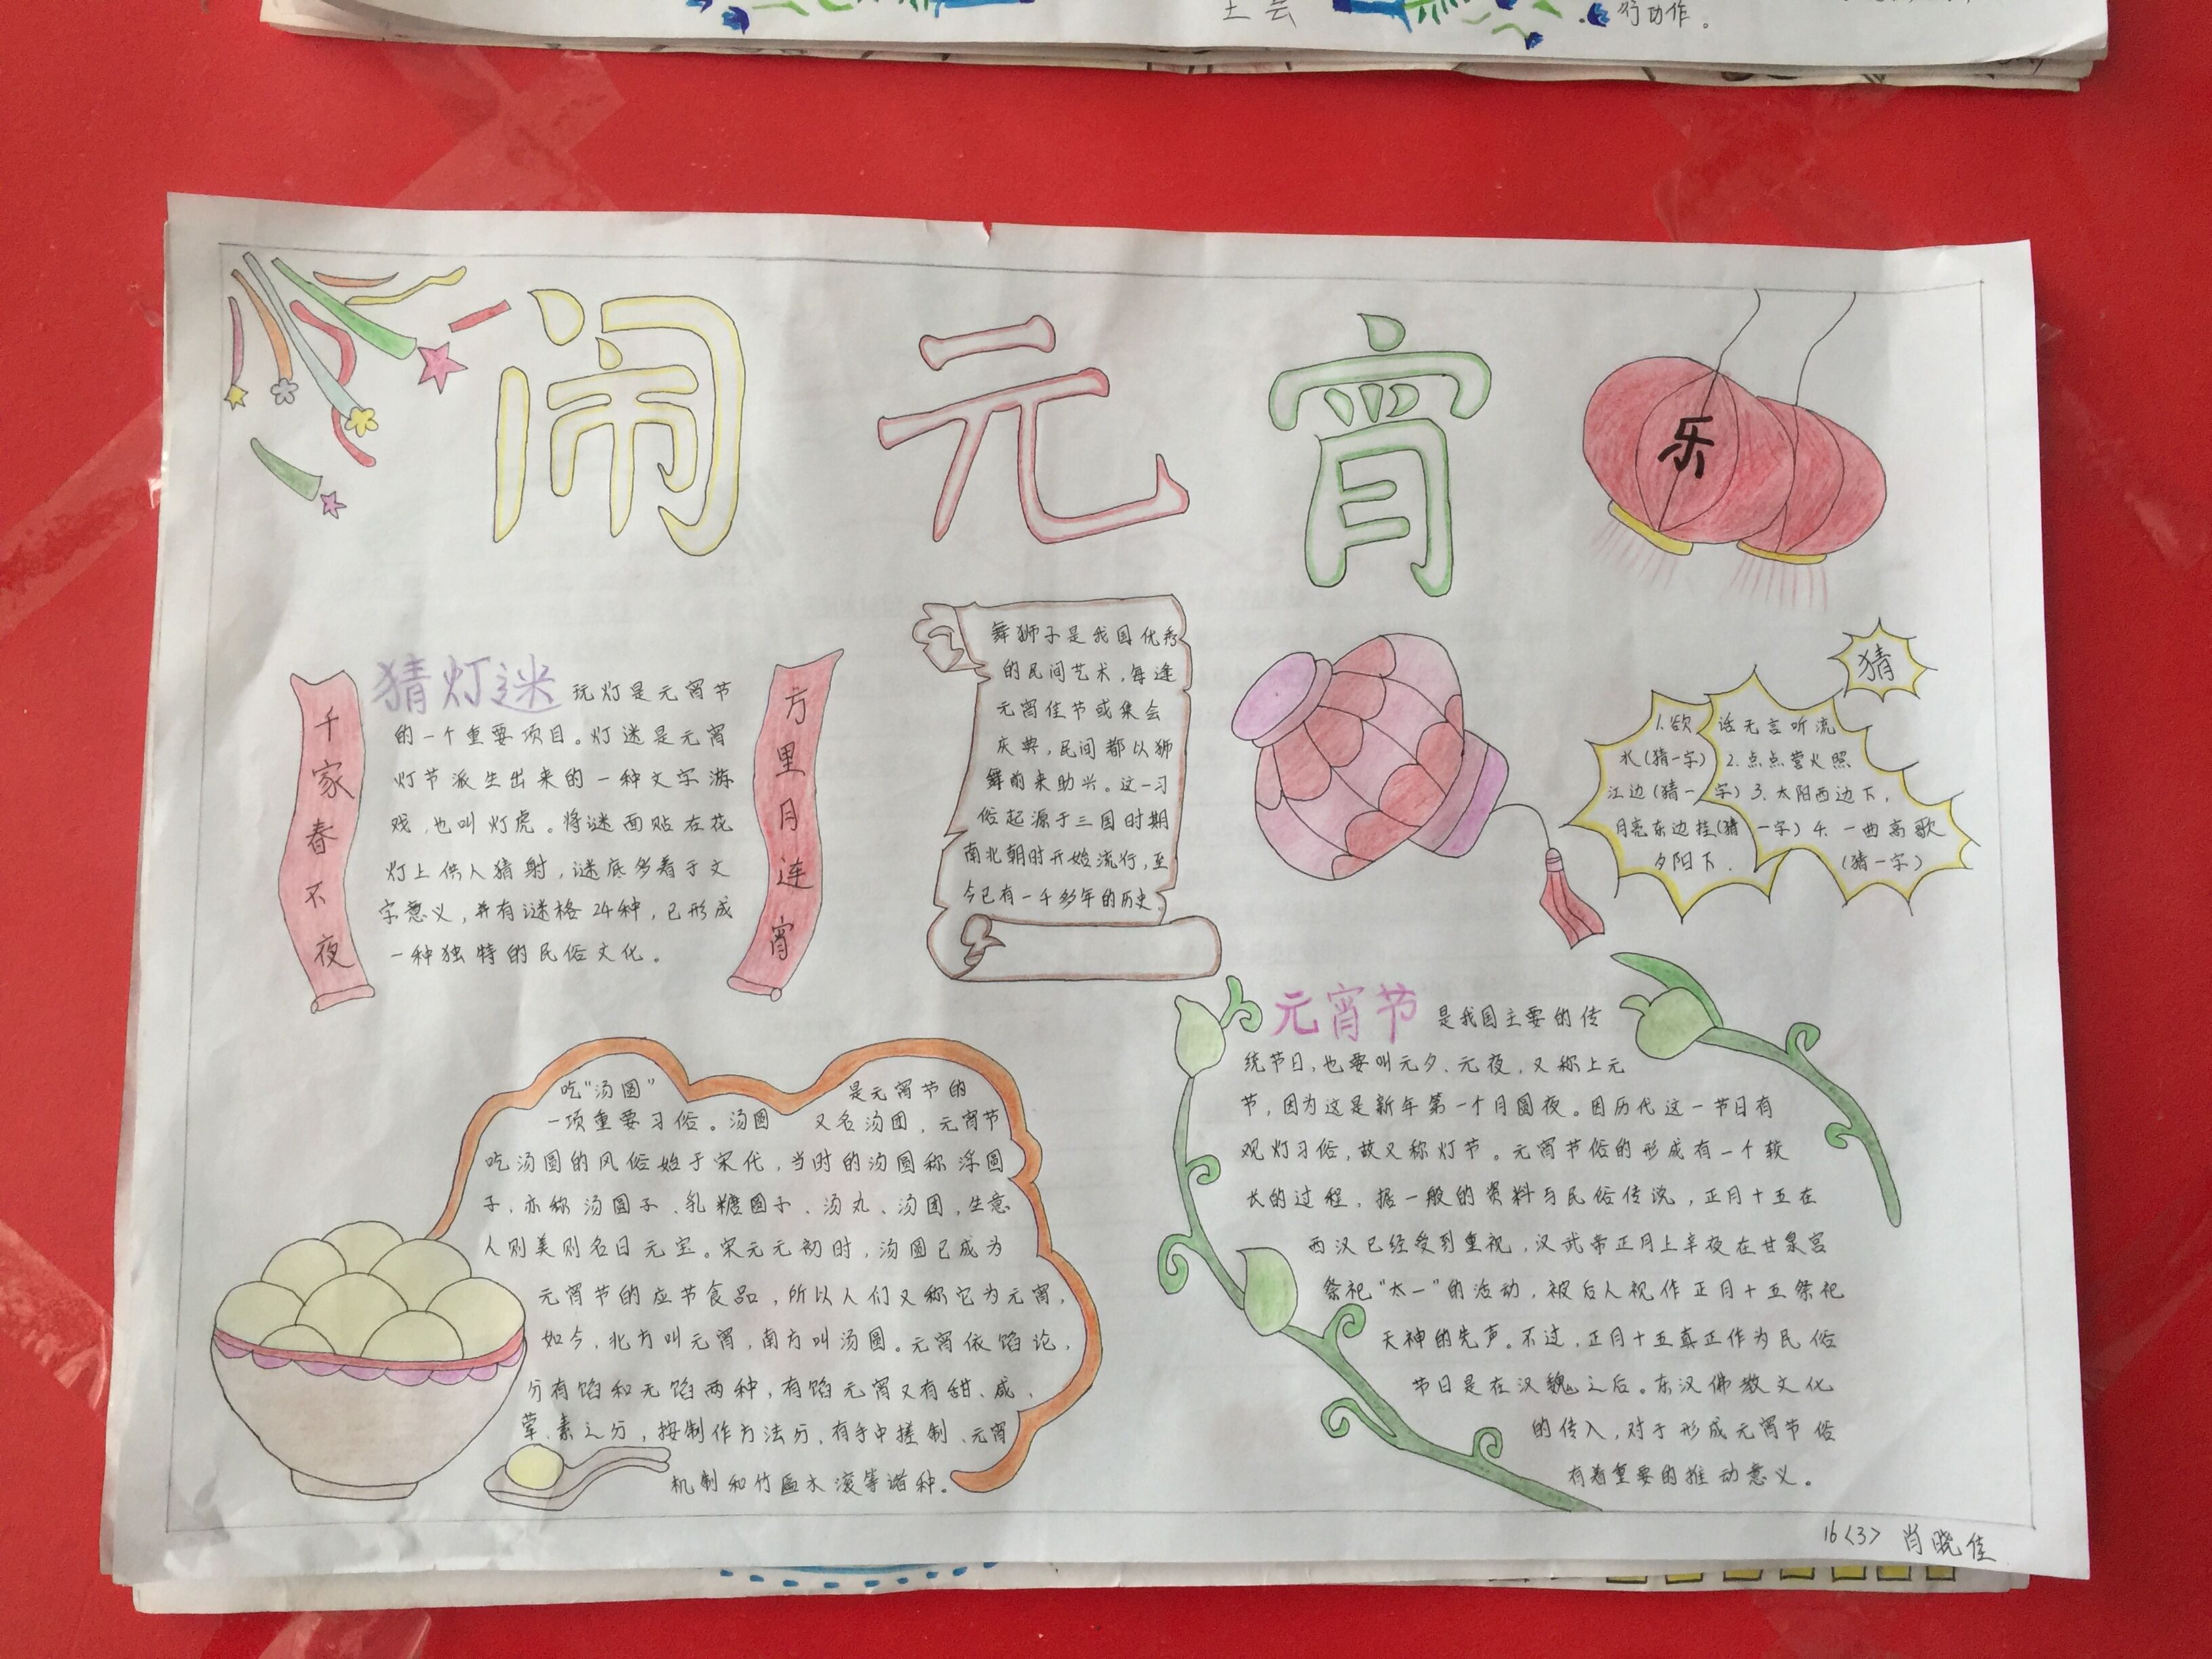 行功作。
闹元宵
乐
千家春不夜
猜灯迷 玩灯是元宵节
的一个重要项目。灯迷是元宵
灯节派生出来的一种文字游
戏,也叫灯虎。将谜面贴在花
灯上供人猜射,谜底多着于文
字意义,并有谜格24种,已形成
一种独特的民俗文化。
方里月连宵
舞狮子是我国优秀
的民间艺术,每逢
元宵佳节或集会
庆典,民间都以狮
舞前来助兴。这一习
俗起源于三国时期
南北朝时开始流行,至
今已有一千多年的历史。
猜
1.欲话无言听流
水(猜一字) 2.点点萤火照
江边(猜一字) 3.太阳西边下,
月亮东边挂(猜一字) 4.一曲高歌
夕阳下. (猜一字)
吃"汤圆" 是元宵节的
一项重要习俗。汤圆 又名汤团,元宵节
吃汤圆的风俗始于宋代,当时的汤圆称浮圆
子、亦称汤圆子、乳糖圆子、汤丸、汤团,生意
人则美则名曰元宝。宋元元初时,汤圆已成为
元宵节的应节食品,所以人们又称它为元宵,
如今,北方叫元宵,南方叫汤圆。元宵依馅论,
分有馅和无馅两种,有馅元宵又有甜、咸、
荤、素之分,按制作方法分,有手中搓制、元宵
机制和竹匾水滚等诸种。
元宵节 是我国主要的传
统节日,也要叫元夕、元夜,又称上元
节,因为这是新年第一个月圆夜。因历代这一节日有
观灯习俗,故又称灯节。元宵节俗的形成有一个较
长的过程,据一般的资料与民俗传说,正月十五在
西汉已经受到重视,汉武帝正月上辛夜在甘泉宫
祭祀"太一"的活动,被后人视作正月十五祭祀
天神的先声。不过,正月十五真正作为民俗
节日是在汉魏之后。东汉佛教文化
的传入,对于形成元宵节俗
有着重要的推动意义。
16<3> 肖晓佳